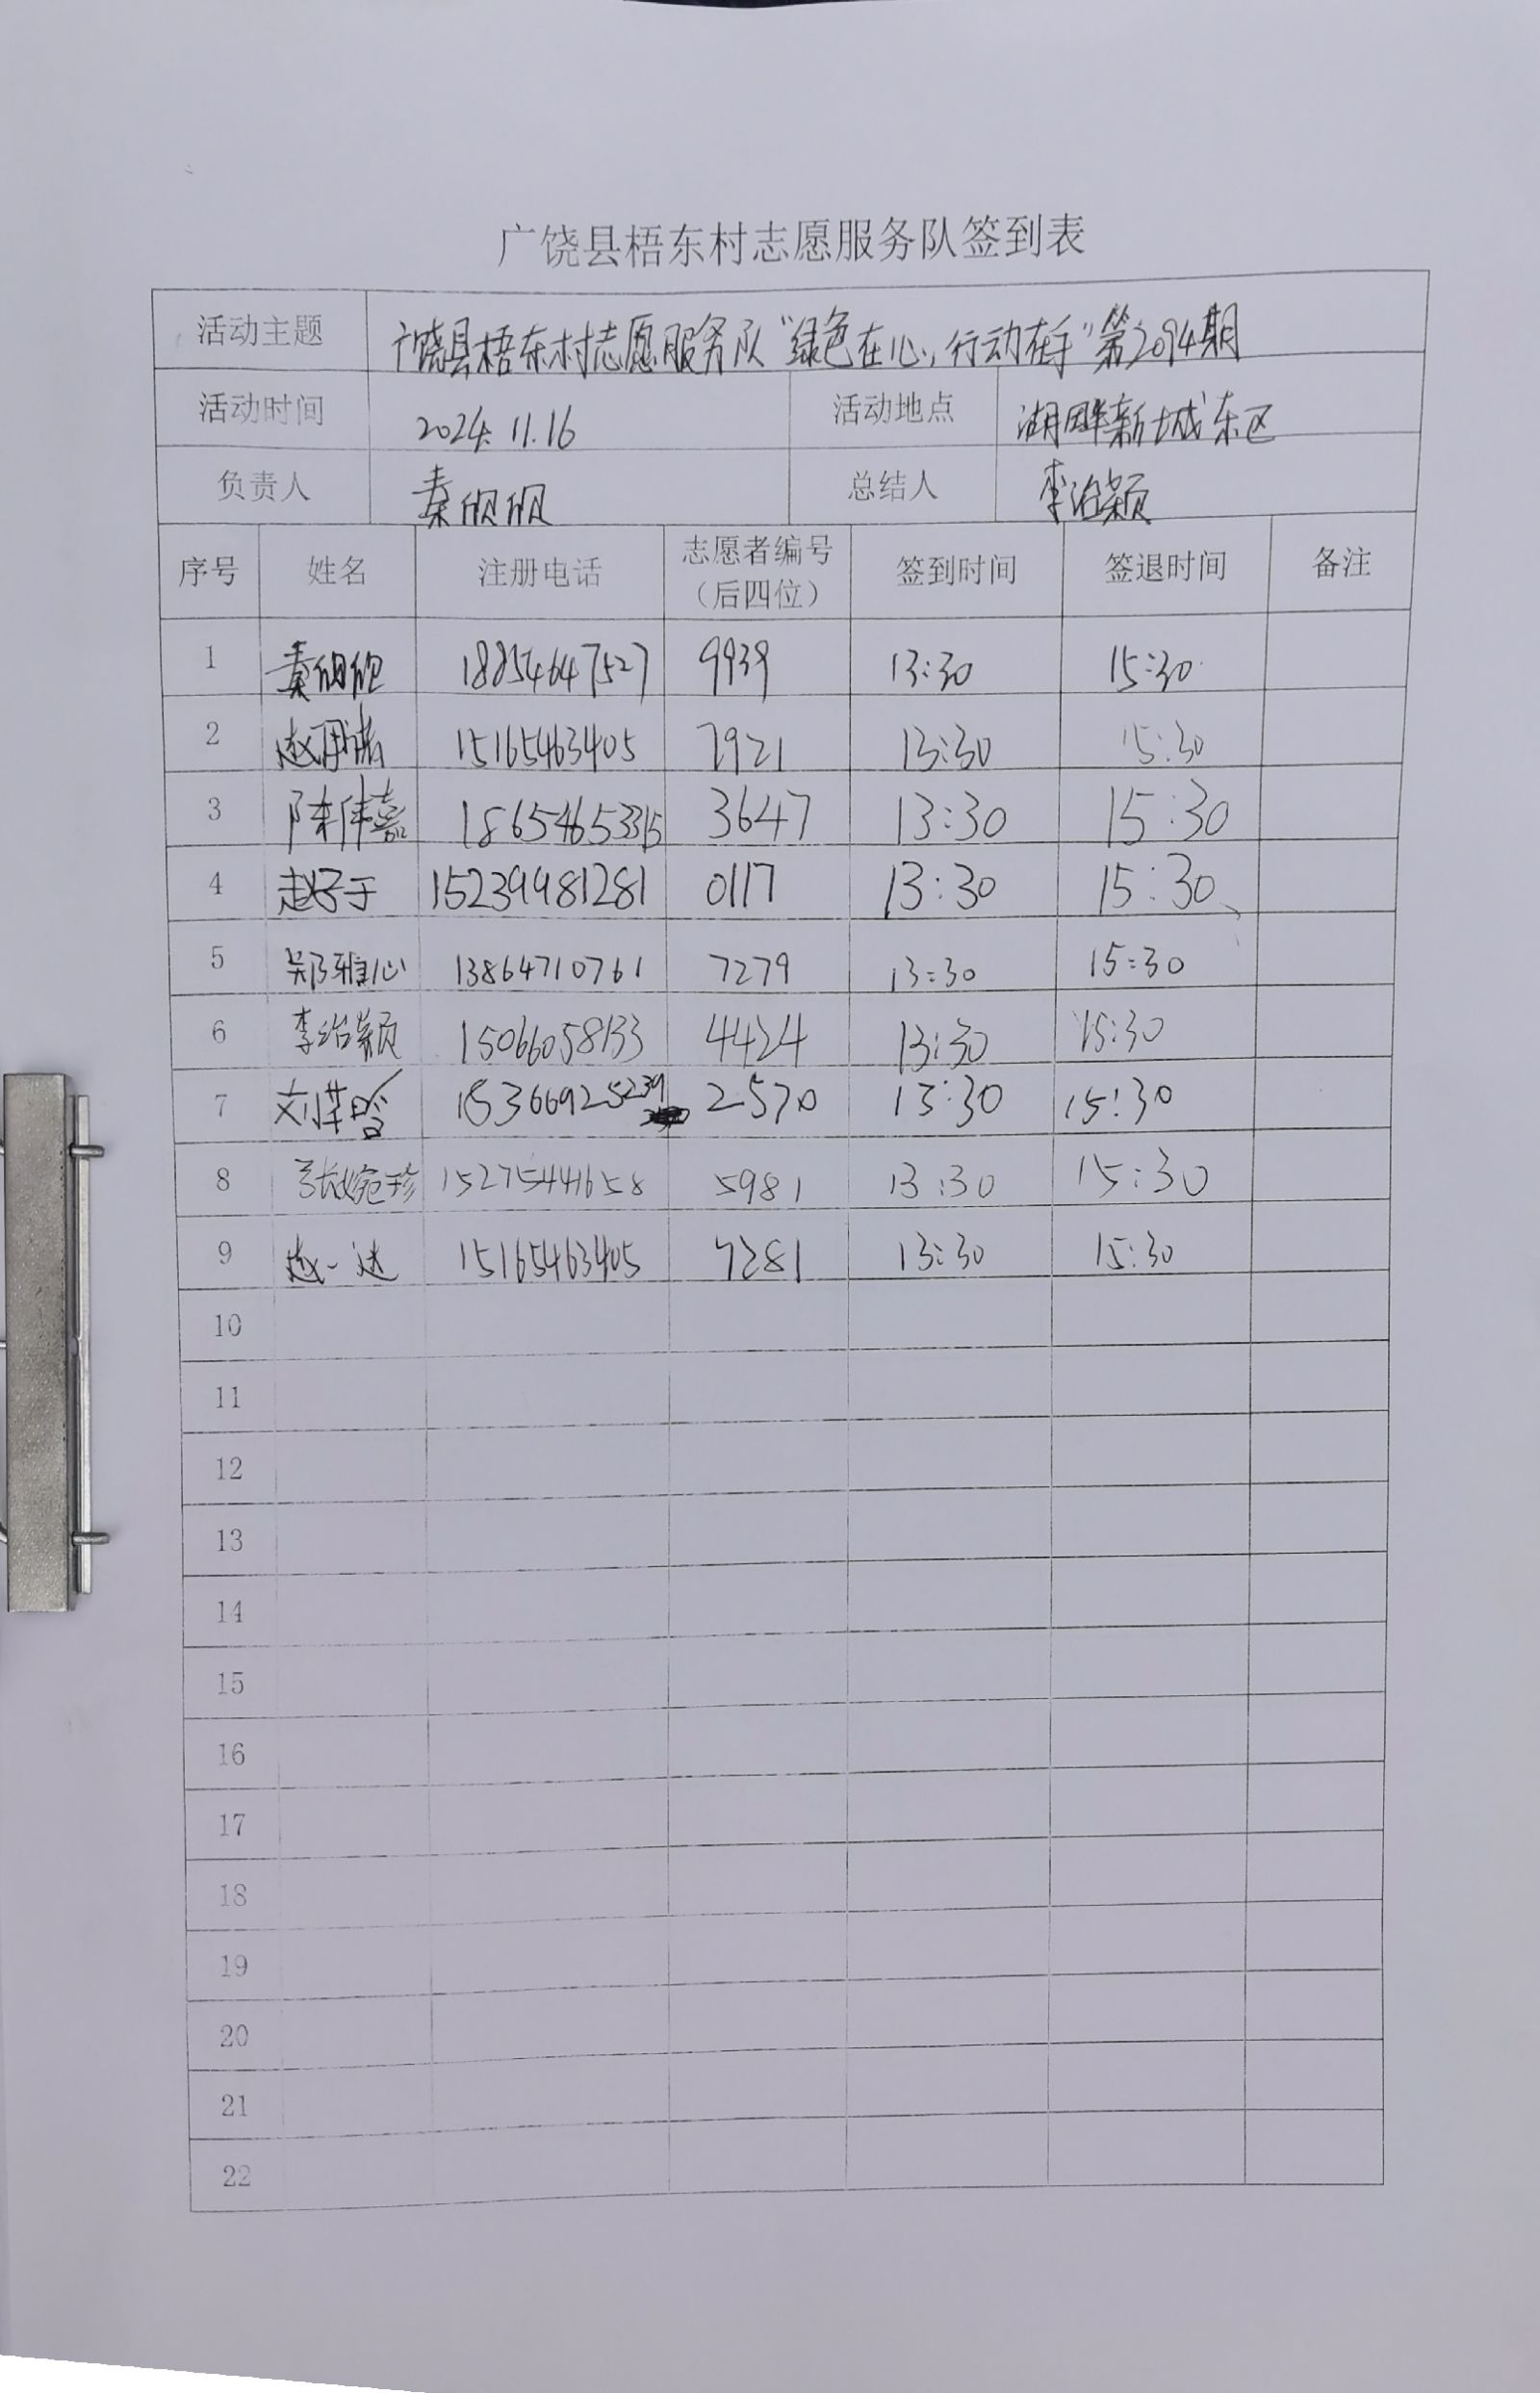 广饶县梧东村志愿服务队签到表
活动主题 广饶县梧东村志愿服务队“绿色在心,行动在手”第2094期
活动时间 2024.11.16 活动地点 湖畔新城东区
负责人 秦 总结人 李治颖
序号 姓名 注册电话 志愿者编号（后四位） 签到时间 签退时间 备注
1 秦 18854647527 9939 13:30 15:30
2 赵 15165463405 7921 13:30 15:30
3 陈伟嘉 18654653315 3647 13:30 15:30
4 赵子于 15239981281 0117 13:30 15:30
5 郑雅心 13864710761 7279 13:30 15:30
6 李治颖 15066058133 4424 13:30 15:30
7 刘 15366925239 2570 13:30 15:30
8 张婉珍 15275441658 5981 13:30 15:30
9 赵一达 15165463405 7281 13:30 15:30
10
11
12
13
14
15
16
17
18
19
20
21
22